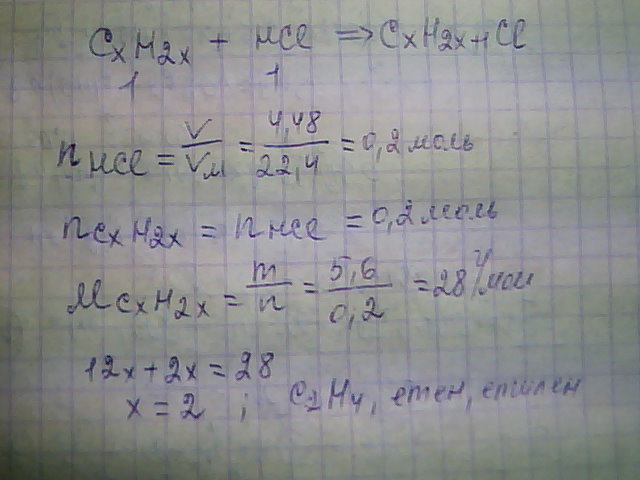 CxH2x + HCl => CxH2x+1Cl
1 1
nHCl = V/Vм = 4,48/22,4 = 0,2 моль
nCxH2x = nHCl = 0,2 моль
MCxH2x = m/n = 5,6/0,2 = 28 г/мол
12x + 2x = 28
x = 2 ; C2H4, етен, етилен